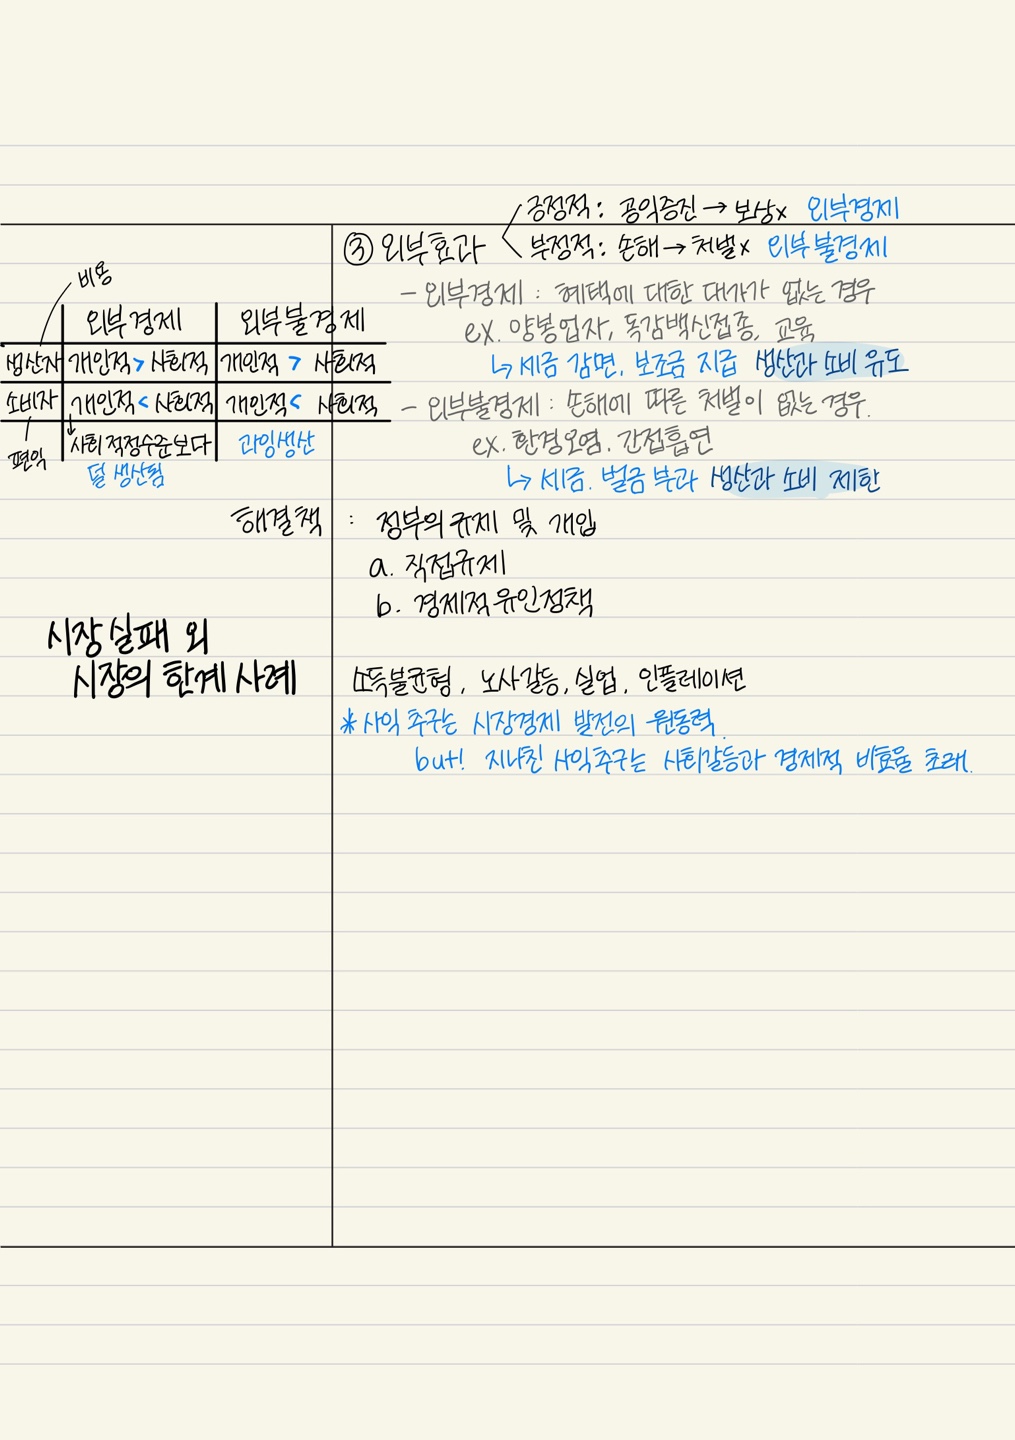 긍정적 : 공익증진 → 보상x 외부경제
③ 외부효과
부정적 : 손해 → 처벌x 외부불경제
비용
외부경제 외부불경제
생산자 개인적 > 사회적 개인적 > 사회적
소비자 개인적 < 사회적 개인적 < 사회적
편익
↓ 사회 적정수준보다 과잉생산
덜 생산됨
- 외부경제 : 혜택에 대한 대가가 없는 경우
ex. 양봉업자, 독감백신접종, 교육
↳ 세금 감면, 보조금 지급 생산과 소비 유도
- 외부불경제 : 손해에 따른 처벌이 없는 경우.
ex. 환경오염. 간접흡연
↳ 세금. 벌금 부과 생산과 소비 제한
해결책 : 정부의 규제 및 개입
a. 직접규제
b. 경제적 유인정책
시장 실패 외
시장의 한계 사례
소득불균형, 노사갈등, 실업, 인플레이션
* 사익 추구는 시장경제 발전의 원동력.
but! 지나친 사익추구는 사회갈등과 경제적 비효율 초래.